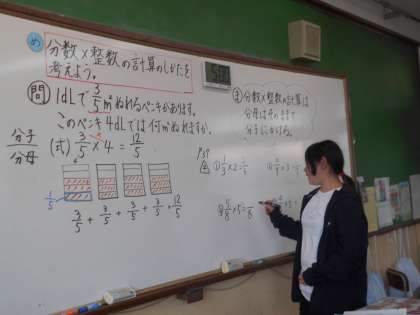 め 分数×整数の計算のしかたを
考えよう。
問 1dLで3/5m²ぬれるペンキがあります。
このペンキ4dLでは何m²ぬれますか。
分子/分母 (式) 3/5×4=12/5
1/5
3/5+3/5+3/5+3/5=12/5
ま 分数×整数の計算は
分母はそのままで
分子にかける。
P37
① 1/5×2=2/5
5/8×5=